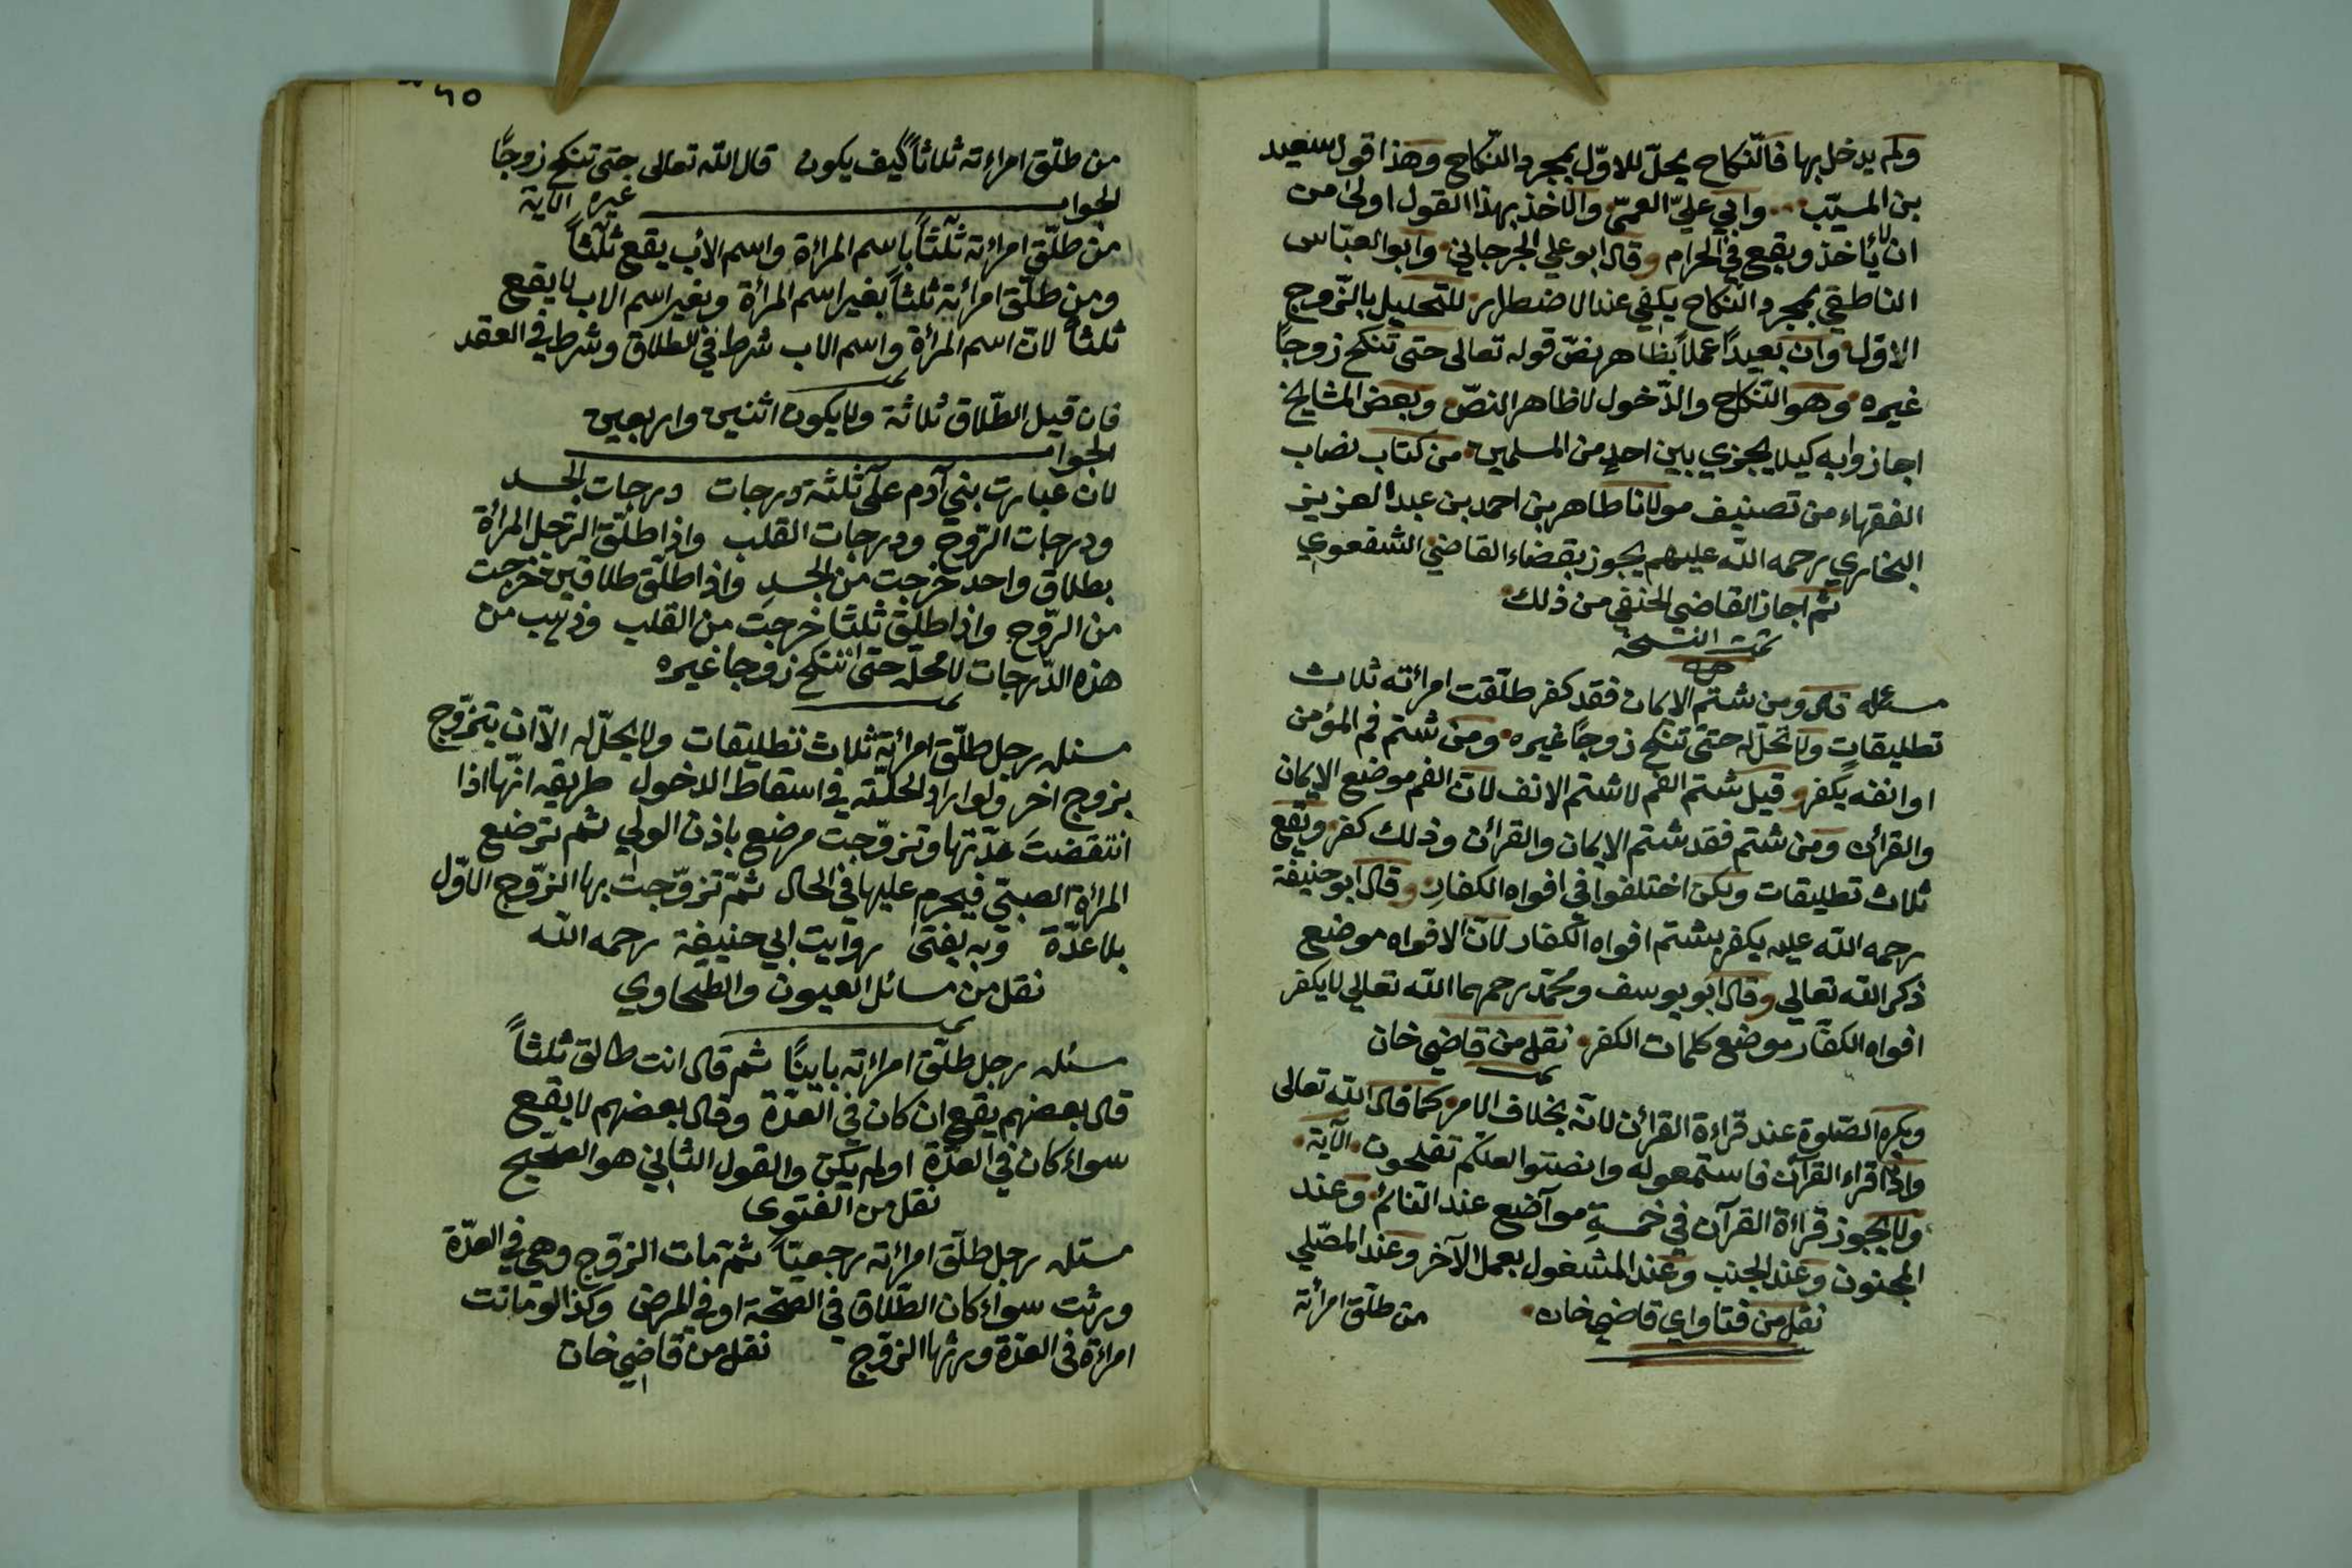 ولم يدخل بها فالنّكاح يحلّ للاوّل بمجرد النّكاح وهذا قول سعيد
بن المسيّب وابي عليّ العميّ والاخذ بهذا القول اولى من
ان لا يأخذ ويقع في الحرام وقال ابو علي الجرجاني وابو العبّاس
الناطقي بمجرد النّكاح يكفي عند الاضطرار للتحليل بالزّوج
الاوّل وان بعيداً عملاً بظاهر نصّ قوله تعالى حتى تنكح زوجاً
غيره وهو النّكاح والدّخول لا ظاهر النصّ وبعض المشايخ
اجازوا به كيلا يجزي بين احدٍ من المسلمين من كتاب نصاب
الفقهاء من تصنيف مولانا طاهر بن احمد بن عبد العزيز
البخاري رحمه اللّه عليهم يجوز بقضاء القاضي الشفعوي
ثم اجاز القاضي الحنفي من ذلك
تمت النسخة
مسئله ومن شتم الايمان فقد كفر طلّقت امرأته ثلاث
تطليقاتٍ ولا تحلّ له حتّى تنكح زوجاً غيره ومن شتم فم المؤمن
او انفه يكفر وقيل شتم الفم لا شتم الانف لانّ الفم موضع الايمان
والقرأن ومن شتم فقد شتم الايمان والقرأن وذلك كفر وتقع
ثلاث تطليقات ولكن اختلفوا في افواه الكفار وقال ابو حنيفة
رحمه اللّه عليه يكفر بشتم افواه الكفار لانّ الافواه موضع
ذكر اللّه تعالي وقال ابو يوسف ومحمّد رحمهما اللّه تعالي لا يكفر
افواه الكفّار موضع كلمات الكفر نقل من قاضي خان
ويكره الصّلوة عند قراءة القرأن لانّه بخلاف الامر كما قال اللّه تعالى
واذا قراء القرآن فاستمعوا له وانصتوا لعلّكم تفلحون الآية
ولا يجوز قراءة القرآن في خمسةِ مواضع عند النائم وعند
المجنون وعند الجنب وعند المشغول بعمل الآخر وعند المصّلي
نقل من فتاواي قاضي خان
من طلّق امرأته
٦٥
من طلّق امراءته ثلاثاً كيف يكون قال اللّه تعالى حتى تنكح زوجًا
غيره الآية
الجواب
من طلّق امراءته ثلثاً باسم المرأة واسم الاب يقع ثلثاً
ومن طلّق امرأته ثلثاً بغير اسم المرأة وبغير اسم الاب لا يقع
ثلثاً لانّ اسم المرأة واسم الاب شرط في الطلاق وشرط في العقد
فان قيل الطّلاق ثلاثة ولا يكون اثنين واربعين
الجواب
لان عبارت بني آدم على ثلثة درجات درجات الجسد
ودرجات الرّوح ودرجات القلب واذا طلّق الرّجل المرأة
بطلاق واحد خرجت من الجسدِ واذا طلّق طلاقين خرجت
من الرّوح واذا طلّق ثلثاً خرجت من القلب وذهب من
هذه الدّرجات لا تحلّ حتى تنكح زوجا غيره
مسئله رجل طلّق امرأته ثلاث تطليقات ولا يحلّ له الّا ان يتزوّج
بزوج اخر ولو اراد الحلّته في اسقاط الدخول طريقه انّها اذا
انتقضت عدّتها وتزوّجت مرضع باذن الولي ثم ترضع
المرأة الصبيّ فيحرم عليها في الحال ثمّ تزوّجت بها الزّوج الاوّل
بلا عدّة وبه يفتى روايت ابي حنيفة رحمه اللّه
نقل من مسائل العيون والطّحاوي
مسئله رجل طلّق امراءته باينًا ثم قال انت طالق ثلثاً
قال بعضهم يقع ان كان في العدّة وقال بعضهم لا يقع
سواء كان في العدّة او لم يكن والقول الثاني هو الصّحيح
نقل من الفتوى
مسئله رجل طلّق امرأته رجعيّاً ثمّ مات الزّوج وهي في العدّة
ورثت سواء كان الطّلاق في الصّحة او في المرض وكذا لو ماتت
امراءة في العدّة ورثها الزّوج نقل من قاضي خان